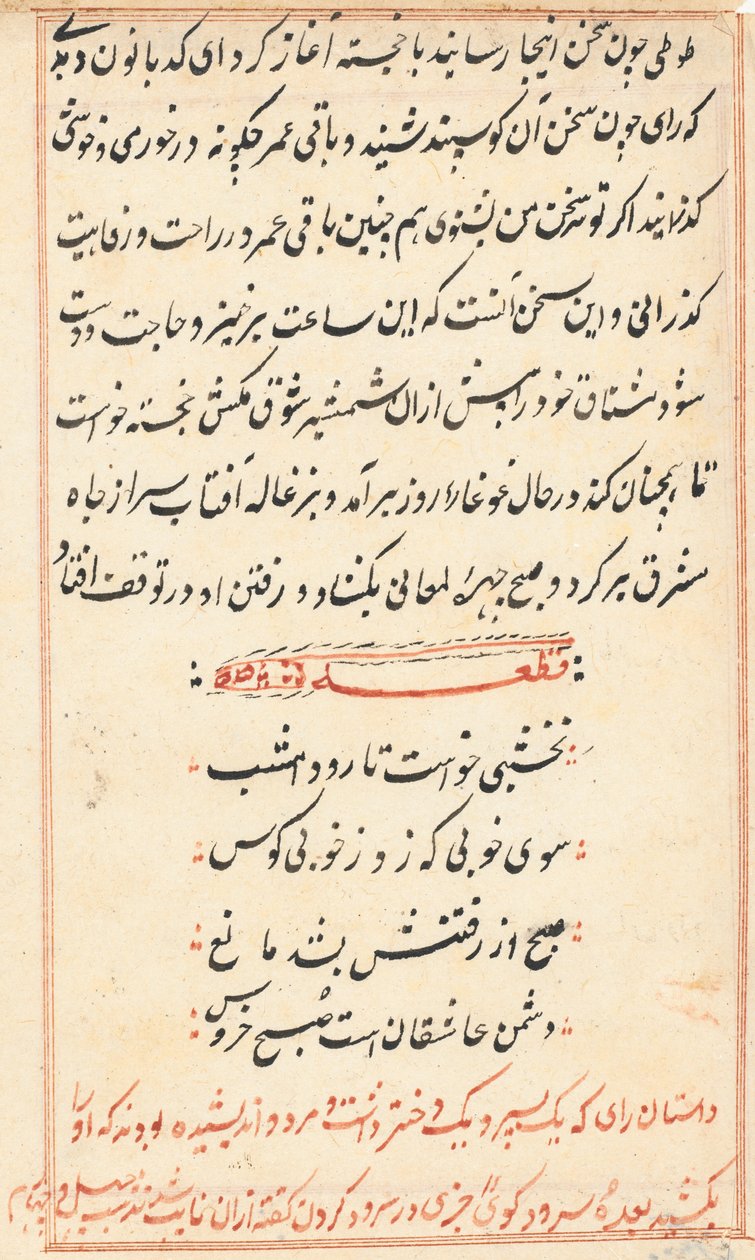 طوطی چون سخن اینجا رسانید با خجسته آغاز کرد ای کدبانو
که رای چون سخن آن گوسپند شنید و باقی عمر چگونه در خورمی و خوشی
گذرانید اگر تو نیز سخن من بشنوی هم چنین باقی عمر در راحت و رفاهیت
گذرانی و این سخن آنست که این ساعت برخیز و حاجت دوست
شو و مشتاق خود را پیش ازان شمشیر شوق مکش خجسته خواست
تا همچنان کند در حال غوغاء روز برآمد و بزغاله آفتاب سر از چاه
مشرق برکرد و صبح چهرهٔ لمعانی بکشاد و رفتن او در توقف افتاد
قطعه
نخشبی خواست تا رود امشب
سوی خوبی که زد ز خوبی کوس
صبح از رفتنش بشد مانع
دشمن عاشقان است صبح خروس
داستان رای که یک پسر و یک دختر داشت و مردو اندیشیده بودند که او را
بکشید بعده سرود گوئی در سرود کردن گفته ازان